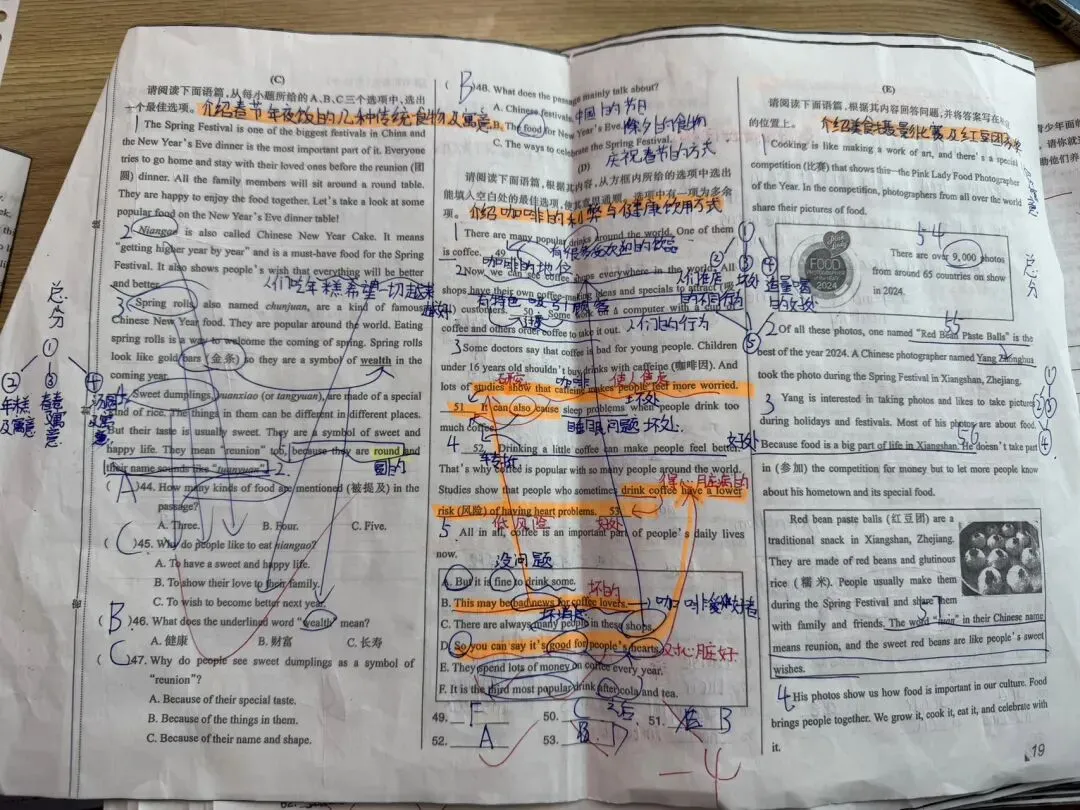 (C)
请阅读下面语篇,从每小题所给的A、B、C三个选项中,选出
一个最佳选项。 介绍春节年夜饭的几种传统食物及寓意
1 The Spring Festival is one of the biggest festivals in China and
the New Year's Eve dinner is the most important part of it. Everyone
tries to go home and stay with their loved ones before the reunion (团
圆) dinner. All the family members will sit around a round table.
They are happy to enjoy the food together. Let's take a look at some
popular food on the New Year's Eve dinner table!
2 Niangao is also called Chinese New Year Cake. It means
"getting higher year by year" and is a must-have food for the Spring
Festival. It also shows people's wish that everything will be better
and better.
人们吃年糕希望一切越来越好
3 Spring rolls, also named chunjuan, are a kind of famous
Chinese New Year food. They are popular around the world. Eating
spring rolls is a way to welcome the coming of spring. Spring rolls
look like gold bars (金条) so they are a symbol of wealth in the
coming year.
4 Sweet dumplings, yuanxiao (or tangyuan), are made of a special
kind of rice. The things in them can be different in different places.
But their taste is usually sweet. They are a symbol of sweet and
happy life. They mean "reunion" too, because they are round and
their name sounds like "tuanyuan".
圆的
总分
①
② ③ ④
年糕及寓意
春卷寓意
汤圆及寓意
( A )44. How many kinds of food are mentioned (被提及) in the
passage?
A. Three. B. Four. C. Five.
( C )45. Why do people like to eat niangao?
A. To have a sweet and happy life.
B. To show their love to their family.
C. To wish to become better next year.
( B )46. What does the underlined word "wealth" mean?
A. 健康 B. 财富 C. 长寿
( C )47. Why do people see sweet dumplings as a symbol of
"reunion"?
A. Because of their special taste.
B. Because of the things in them.
C. Because of their name and shape.
( B )48. What does the passage mainly talk about?
A. Chinese festivals. 中国的节日
B. The food for New Year's Eve. 除夕的食物
C. The ways to celebrate the Spring Festival.
庆祝春节的方式
(D)
请阅读下面语篇,根据其内容,从方框内所给的选项中选出
能填入空白处的最佳选项,使其意思通顺。选项中有一项为多余
项。 介绍咖啡的利弊与健康饮用方式
1 There are many popular drinks around the world. One of them
is coffee. 49 有很多受欢迎的饮品
咖啡的地位
2 Now, we can see coffee shops everywhere in the world. All
shops have their own coffee-making ideas and specials to attract (吸
引) customers. 50 Some work a computer with a cup of
coffee and others order coffee to take it out. 人们的行为
3 Some doctors say that coffee is bad for young people. Children
under 16 years old shouldn't buy drinks with caffeine (咖啡因). And
研究 咖啡
lots of studies show that caffeine makes people feel more worried.
51 It can also cause sleep problems when people drink too
much coffee. 睡眠问题 坏处
4 52 Drinking a little coffee can make people feel better.
That's why coffee is popular with so many people around the world.
Studies show that people who sometimes drink coffee have a lower
risk (风险) of having heart problems. 53
低风险 好处
5 All in all, coffee is an important part of people's daily lives
now.
没问题
A. But it is fine to drink some.
坏的
B. This may be bad news for coffee lovers. 咖啡爱好者
坏消息
C. There are always many people in these shops.
D. So you can say it's good for people's hearts. 对心脏好
E. They spend lots of money on coffee every year.
F. It is the third most popular drink after cola and tea.
之后
49. F 50. C 51. B
52. A 53. D
-4
(E)
请阅读下面语篇,根据其内容回答问题,并将答案写在对应
的位置上。 介绍美食摄影比赛及红豆团
1 Cooking is like making a work of art, and there's a special
competition (比赛) that shows this—the Pink Lady Food Photographer
of the Year. In the competition, photographers from all over the world
share their pictures of food.
54
pink lady
FOOD
2024
There are over 9,000 photos
from around 65 countries on show
in 2024.
总分
55
2 Of all these photos, one named "Red Bean Paste Balls" is the
best of the year 2024. A Chinese photographer named Yang Zhonghua
took the photo during the Spring Festival in Xiangshan, Zhejiang.
3 Yang is interested in taking photos and likes to take pictures
during holidays and festivals. Most of his photos are about food.
56
Because food is a big part of life in Xiangshan. He doesn't take part
in (参加) the competition for money but to let more people know
about his hometown and its special food.
Red bean paste balls (红豆团) are a
traditional snack in Xiangshan, Zhejiang.
They are made of red beans and glutinous
rice (糯米). People usually make them
during the Spring Festival and share them
57
with family and friends. The word "tuan" in their Chinese name
means reunion, and the sweet red beans are like people's sweet
wishes.
4 His photos show us how food is important in our culture. Food
brings people together. We grow it, cook it, eat it, and celebrate with
it.
19